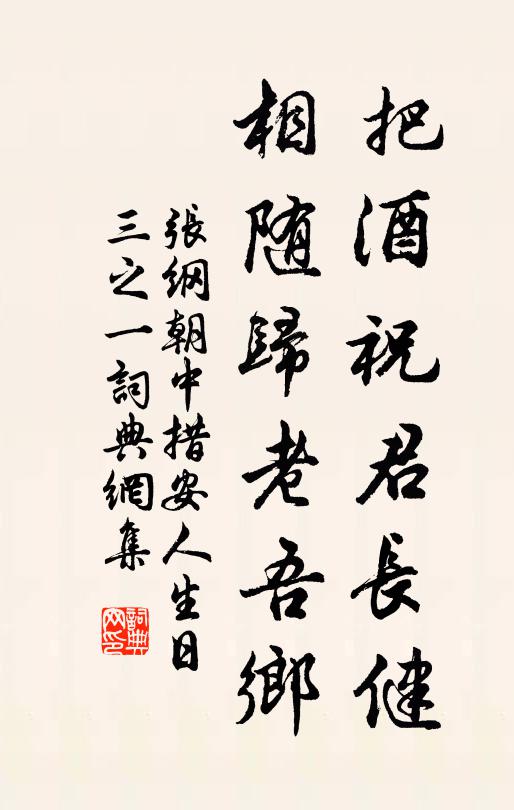 把酒祝君長健
相随歸老吾鄉
張綱朝中措安人生日
三之一詞典網集
詞典網印